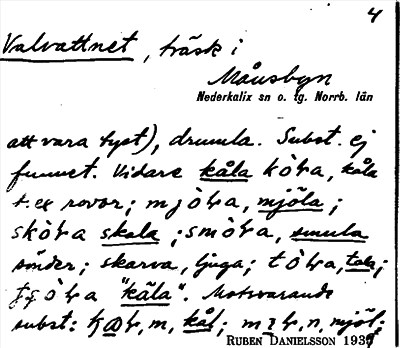 4
Valvattnet, träsk i
Månsbyn
Nederkalix sn o. tg. Norrb. län
att vara tyst), drumla. Subst. ej
funnet. Vidare kåla kòla, kåla
t. ex rovor; mjòla, mjöla;
skòla skala; smòla, smula
sönder; skarva, ljuga; tòla, tala;
"käla". Motsvarande
subst: m, kål; n, mjöl;
RUBEN DANIELSSON 193